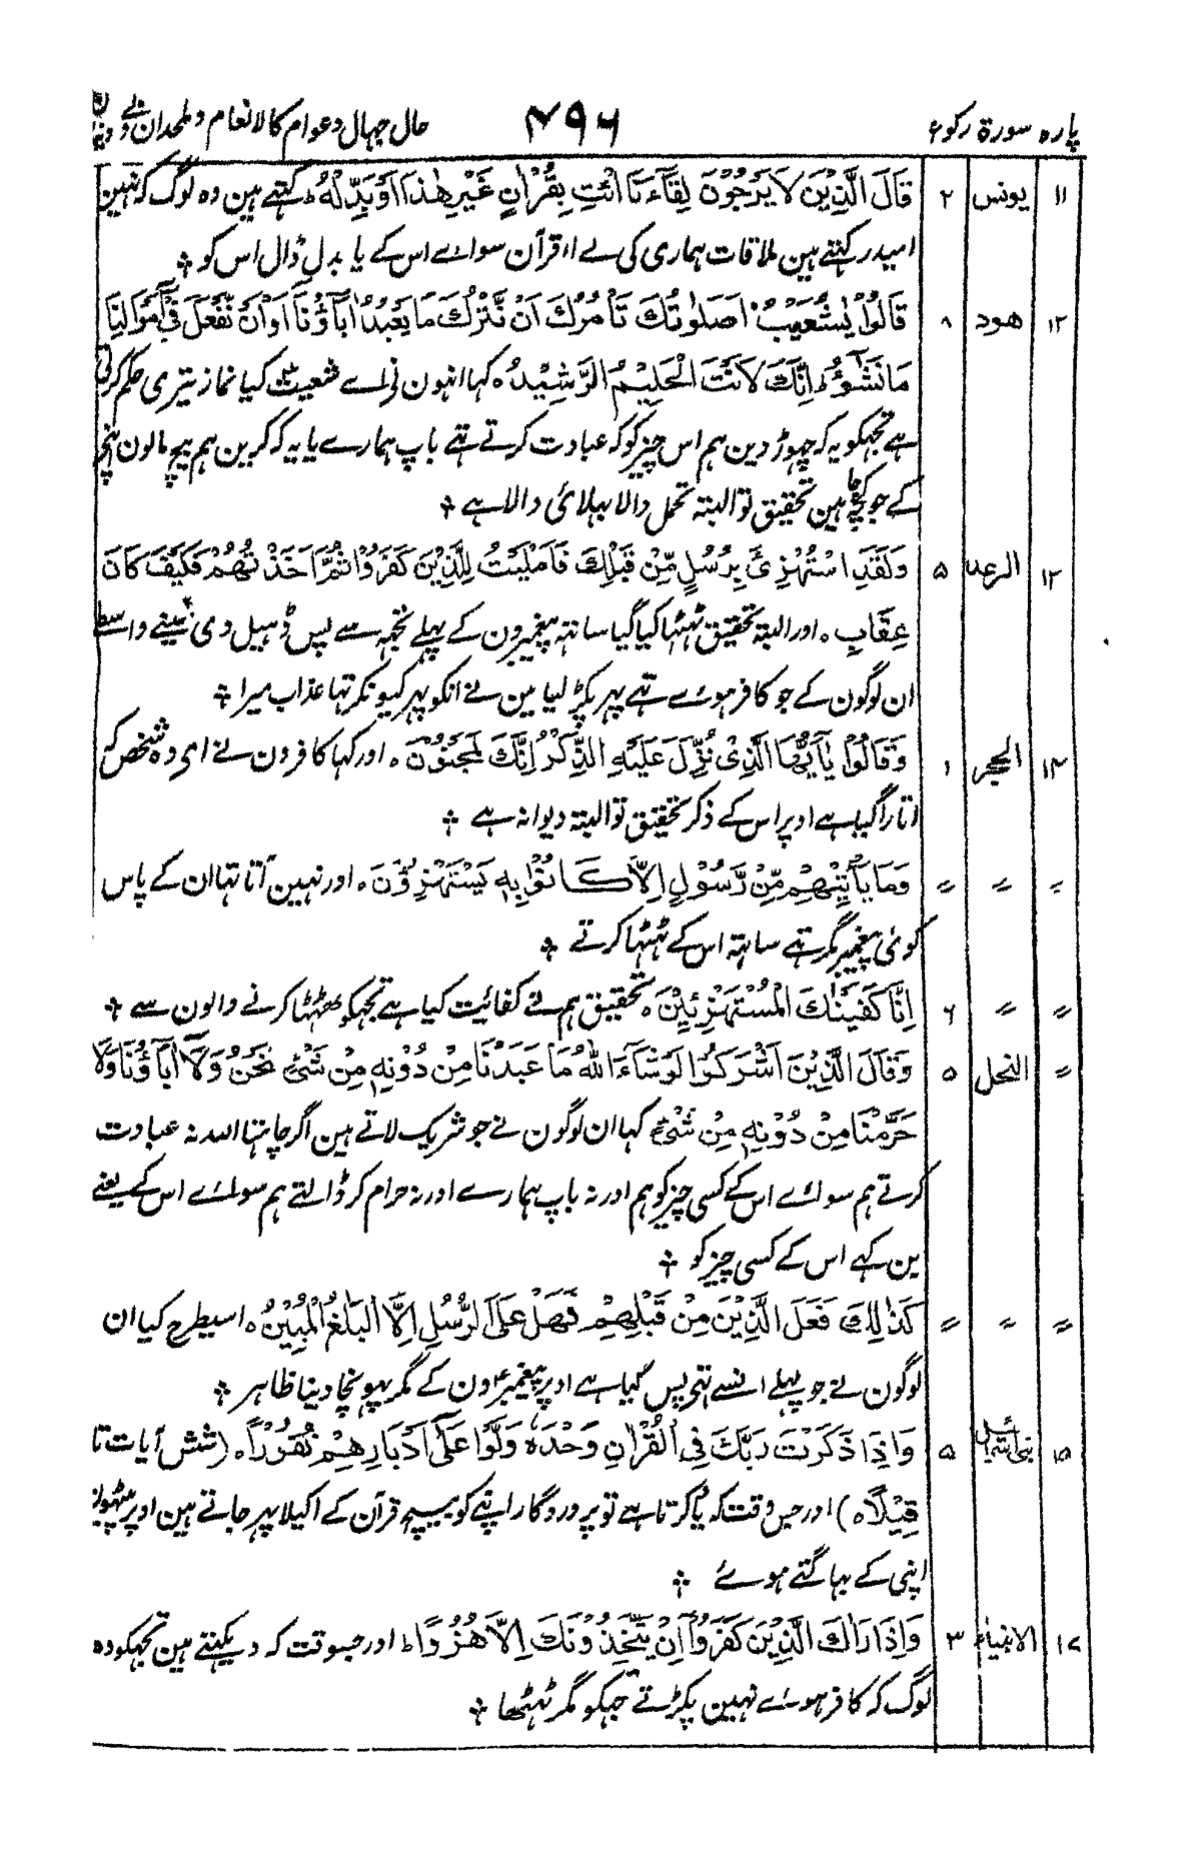 پارہ سورۃ رکوع ۷۹۶ حال جہال و عوام کالانعام و ملحدان بے دین
۱۱ یونس ۲ قَالَ الَّذِيْنَ لَا يَرْجُوْنَ لِقَآءَنَا ائْتِ بِقُرْاٰنٍ غَيْرِ هٰذَا اَوْ بَدِّلْهُ ط کہتے ہین وہ لوگ کہ نہین
امید رکہتے ہین ملاقات ہماری کی لے ا، قرآن سوائے اس کے یا بدل ڈال اس کو ❖
۱۲ ھود ۸ قَالُوْا يٰشُعَيْبُ اَصَلٰوتُكَ تَاْمُرُكَ اَنْ نَّتْرُكَ مَا يَعْبُدُ اٰبَآؤُنَا اَوْ اَنْ نَّفْعَلَ فِيْ اَمْوَالِنَا
مَا نَشٰٓؤُا ط اِنَّكَ لَاَنْتَ الْحَلِيْمُ الرَّشِيْدُ ہ کہا انہون نے اے شعیبؑ کیا نماز تیری حکم کرتی
ہے تجہکو یہ کہ چہوڑ دین ہم اس چیز کو کہ عبادت کرتے تہے باپ ہمارے یا یہ کہ کرین ہم بیچ مالون اپنے
کے جو کچہ چاہین تحقیق تو البتہ تحمل والا بہلائی والا ہے ❖
۱۳ الرعد ۵ وَلَقَدِ اسْتُهْزِئَ بِرُسُلٍ مِّنْ قَبْلِكَ فَاَمْلَيْتُ لِلَّذِيْنَ كَفَرُوْا ثُمَّ اَخَذْتُهُمْ فَكَيْفَ كَانَ
عِقَابِ ہ اور البتہ تحقیق ٹہٹہا کیا گیا ساتہ پیغمبرون کے پہلے تجہہ سے پس ڈہیل دی مینے واسطے
ان لوگون کے جو کافر ہوئے تہے پہر پکڑ لیا مین نے انکو پہر کیونکر تہا عذاب میرا ❖
۱۴ الحجر ۱ وَقَالُوْا يٰٓاَيُّهَا الَّذِيْ نُزِّلَ عَلَيْهِ الذِّكْرُ اِنَّكَ لَمَجْنُوْنٌ ہ اور کہا کافرون نے ای وہ شخص کہ
اتارا گیا ہے اوپر اس کے ذکر تحقیق تو البتہ دیوانہ ہے ❖
〃 〃 〃 وَمَا يَاْتِيْهِمْ مِّنْ رَّسُوْلٍ اِلَّا كَانُوْا بِهٖ يَسْتَهْزِءُوْنَ ہ اور نہین آتا تہا ان کے پاس
کوئی پیغمبر مگر تہے ساتہہ اس کے ٹہٹہا کرتے ❖
〃 〃 ۶ اِنَّا كَفَيْنٰكَ الْمُسْتَهْزِئِيْنَ ہ تحقیق ہم نے کفائیت کیا ہے تجہکو ٹھٹہا کرنے والون سے ❖
〃 النحل ۵ وَقَالَ الَّذِيْنَ اَشْرَكُوْا لَوْ شَآءَ اللّٰهُ مَا عَبَدْنَا مِنْ دُوْنِهٖ مِنْ شَيْءٍ نَّحْنُ وَلَآ اٰبَآؤُنَا وَلَا
حَرَّمْنَا مِنْ دُوْنِهٖ مِنْ شَيْءٍ کہا ان لوگون نے جو شریک لاتے ہین اگر چاہتا اللہ نہ عبادت
کرتے ہم سوائے اس کے کسی چیز کو ہم اور نہ باپ ہمارے اور نہ حرام کر ڈالتے ہم سوائے اس کے یعنے
بن کہے اس کے کسی چیز کو ❖
〃 〃 〃 كَذٰلِكَ فَعَلَ الَّذِيْنَ مِنْ قَبْلِهِمْ فَهَلْ عَلَى الرُّسُلِ اِلَّا الْبَلٰغُ الْمُبِيْنُ ہ اسیطرح کیا ان
لوگون نے جو پہلے انسے تہے پس کیا ہے اوپر پیغمبرون کے مگر پہونچا دینا ظاہر ❖
۱۵ بنی اسرائیل ۵ وَاِذَا ذَكَرْتَ رَبَّكَ فِي الْقُرْاٰنِ وَحْدَهٗ وَلَّوْا عَلٰٓى اَدْبَارِهِمْ نُفُوْرًا ہ (شش آیات تا
قَلِيْلًا ہ) اور جس وقت کہ یاد کرتا ہے تو پروردگار اپنے کو بیچ قرآن کے اکیلا پہر جاتے ہین اوپر پیٹھون
اپنی کے بہاگتے ہوئے ❖
۱۷ الانبیاء ۳ وَاِذَا رَاٰكَ الَّذِيْنَ كَفَرُوْٓا اِنْ يَّتَّخِذُوْنَكَ اِلَّا هُزُوًا ط اور جسوقت کہ دیکہتے ہین تجہکو وہ
لوگ کہ کافر ہوئے نہین پکڑتے تجہکو مگر ٹہٹھا ❖